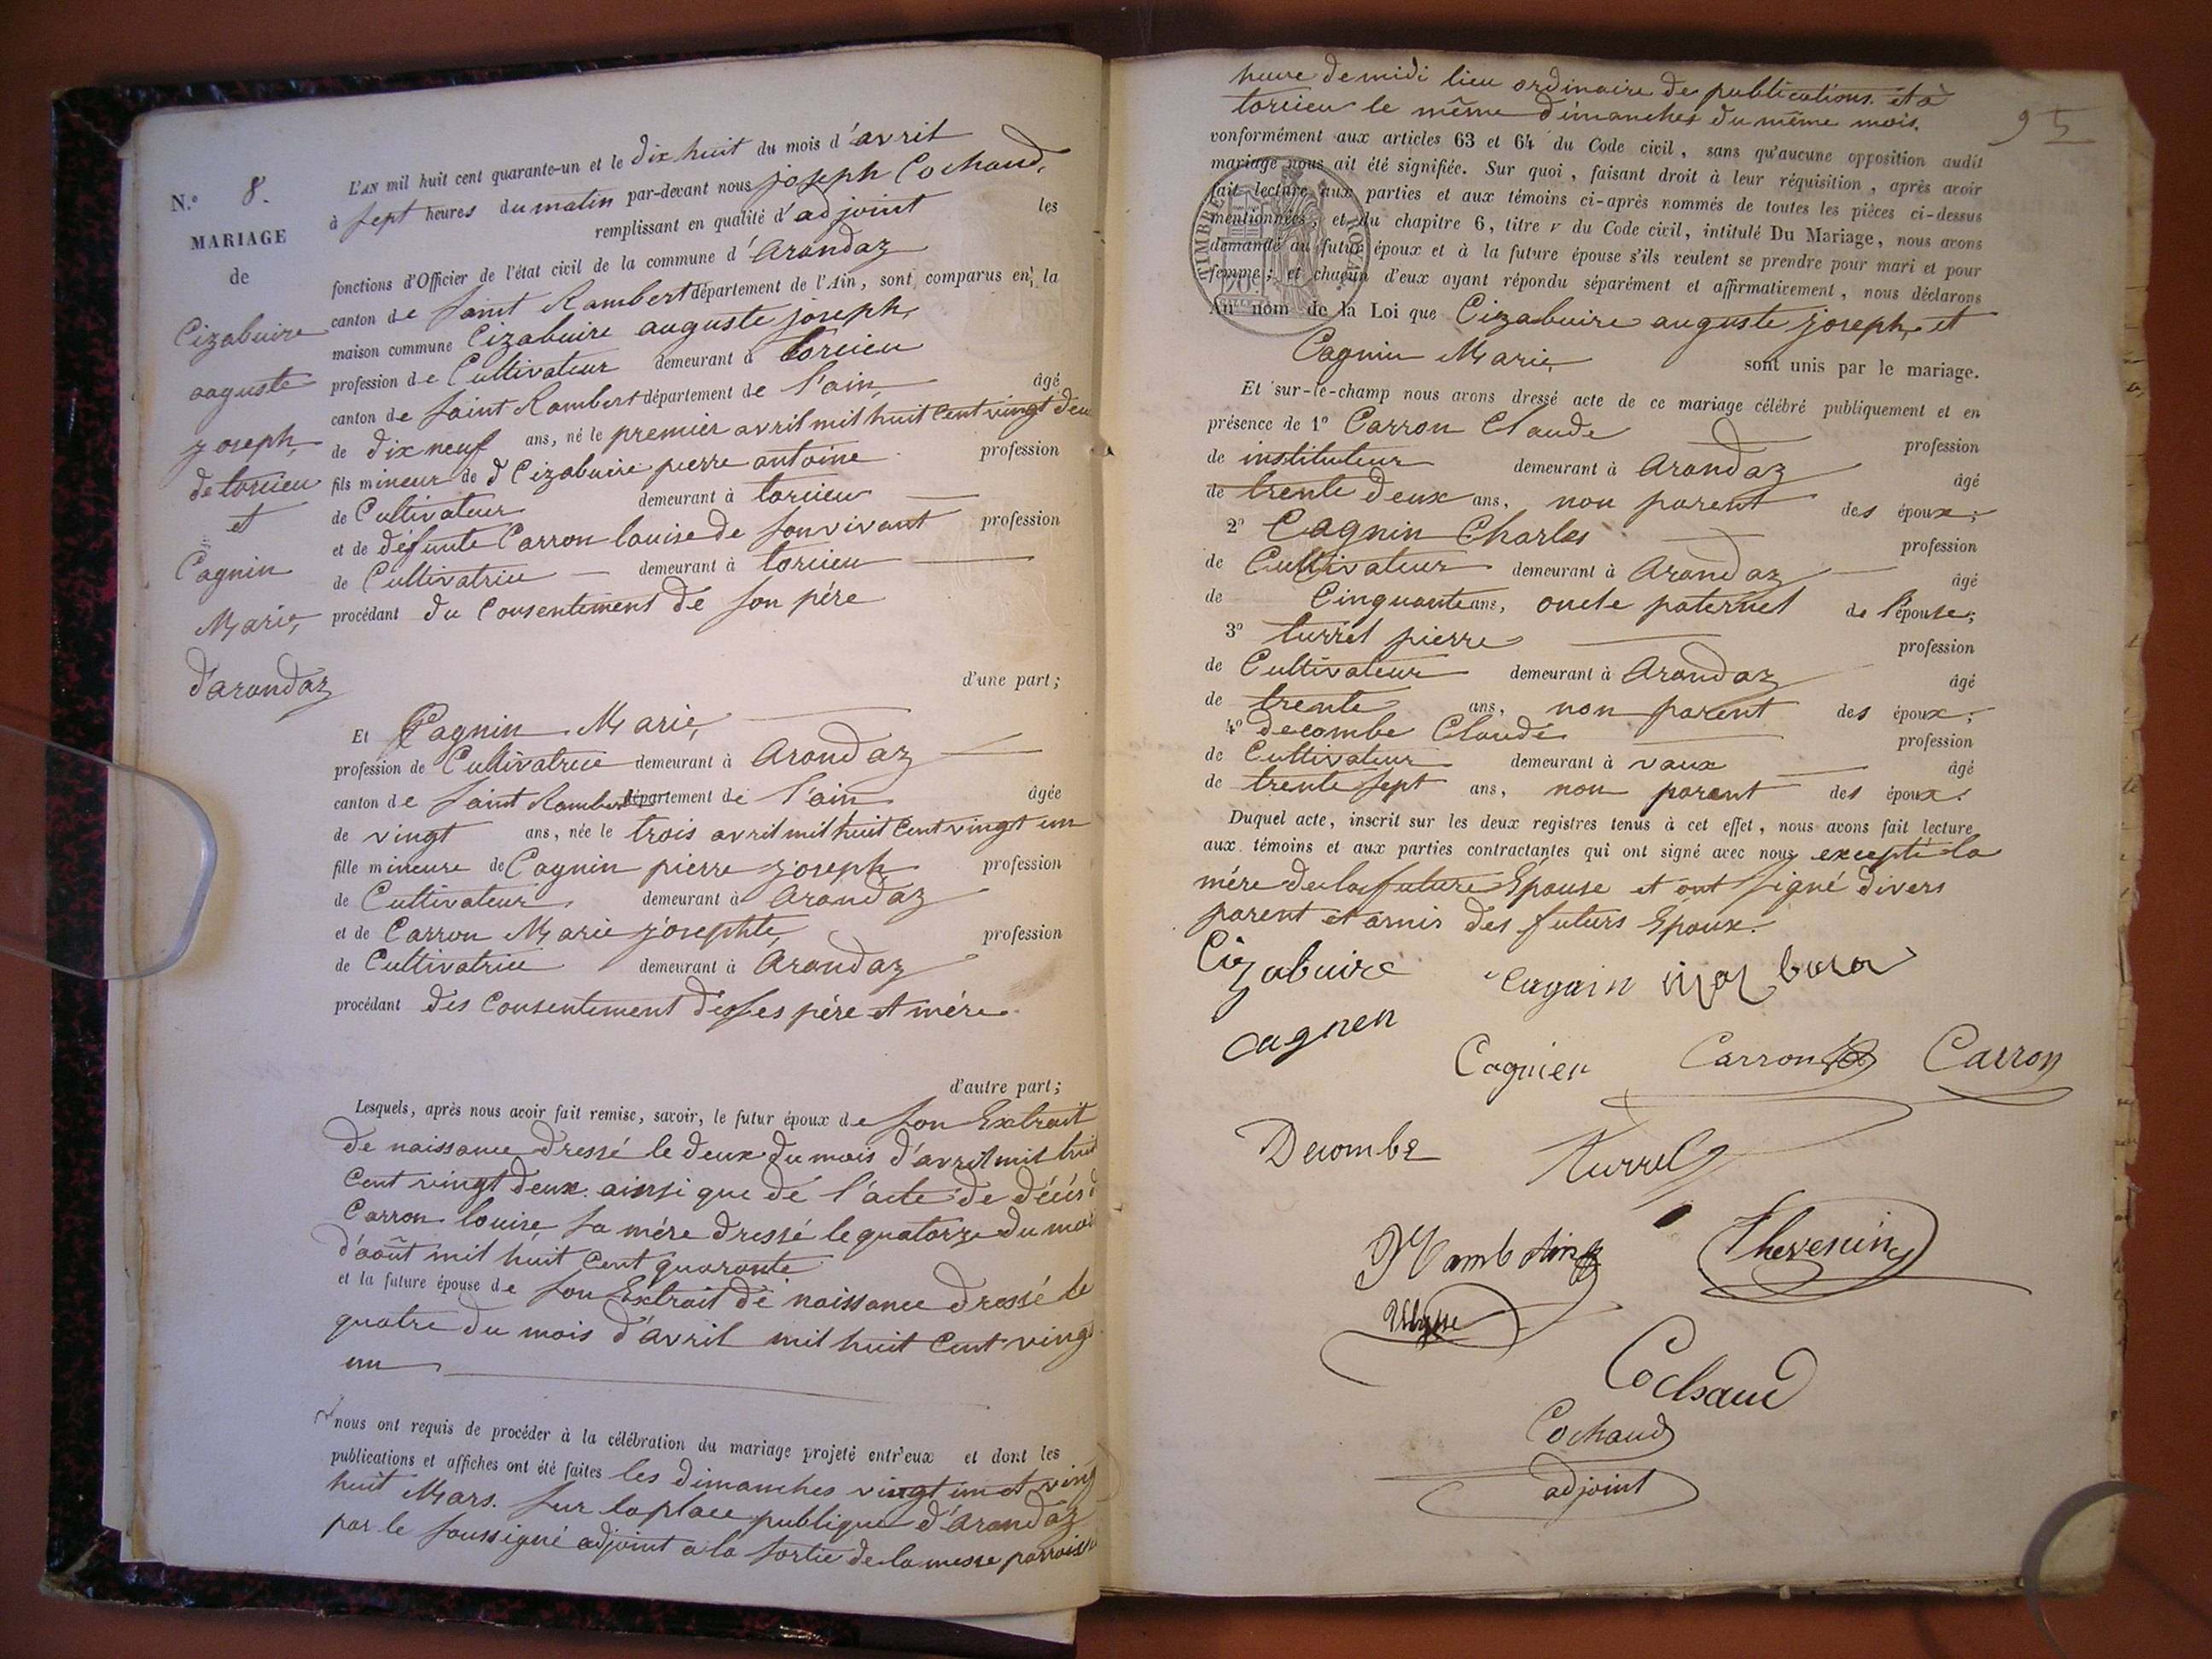 N.° 8.
MARIAGE
de
Cizabuire
auguste
joseph,
de torcieu
et
Cagnin
Marie,
d'arandaz
L'AN mil huit cent quarante-un et le dix huit du mois d'avril
à sept heures du matin par-devant nous joseph Cochaud,
remplissant en qualité d'adjoint les
fonctions d'Officier de l'état civil de la commune d'Arandaz
canton de saint Rambert département de l'Ain, sont comparus en la
maison commune Cizabuire auguste joseph,
profession de Cultivateur demeurant à torcieu
canton de saint Rambert département de l'ain, âgé
de dix neuf ans, né le premier avril mil huit cent vingt deu
fils mineur de d Cizabuire pierre antoine profession
de Cultivateur demeurant à torcieu
et de défunte Carron louise de son vivant profession
de Cultivatrice demeurant à torcieu
procédant du consentement de son père
d'une part;
Et Cagnin Marie,
profession de Cultivatrice demeurant à Arandaz
canton de saint Rambert département de l'ain âgée
de vingt ans, née le trois avril mil huit cent vingt un
fille mineure de Cagnin pierre joseph profession
de Cultivateur, demeurant à Arandaz
et de Carron Marie josephte, profession
de Cultivatrice demeurant à Arandaz
procédant des consentement de ses père et mère
d'autre part;
Lesquels, après nous avoir fait remise, savoir, le futur époux de son Extrait
de naissance dressé le deux du mois d'avril mil huit
cent vingt deux. ainsi que de l'acte de décès d
Carron louise, sa mère dressé le quatorze du moi
d'août mil huit cent quarante
et la future épouse de son Extrait de naissance dressé le
quatre du mois d'avril mil huit cent ving
un
nous ont requis de procéder à la célébration du mariage projeté entr'eux et dont les
publications et affiches ont été faites les dimanches vingt un et ving
huit Mars. sur la place publique d'Arandaz
par le soussigné adjoint a la sortie de la messe parroiss
95
heure de midi lieu ordinaire de publications. et à
torcieu le même dimanches du même mois.
conformément aux articles 63 et 64 du Code civil, sans qu'aucune opposition audit
mariage nous ait été signifiée. Sur quoi, faisant droit à leur réquisition, après avoir
fait lecture aux parties et aux témoins ci-après nommés de toutes les pièces ci-dessus
mentionnées, et du chapitre 6, titre v du Code civil, intitulé Du Mariage, nous avons
demandé au futur époux et à la future épouse s'ils veulent se prendre pour mari et pour
femme; et chacun d'eux ayant répondu séparément et affirmativement, nous déclarons
Au nom de la Loi que Cizabuire auguste joseph, et
Cagnin Marie, sont unis par le mariage.
TIMBRE ROYAL
Et sur-le-champ nous avons dressé acte de ce mariage célébré publiquement et en
présence de 1° Carron Claude profession
de instituteur demeurant à Arandaz âgé
de trente deux ans, non parent des époux;
2° Cagnin Charles profession
de Cultivateur demeurant à Arandaz âgé
de Cinquante ans, oncle paternel de l'épouse;
3° turrel pierre profession
de Cultivateur demeurant à Arandaz âgé
de trente ans, non parent des époux;
4° decombe Claude profession
de Cultivateur demeurant à vaux âgé
de trente sept ans, non parent des époux.
Duquel acte, inscrit sur les deux registres tenus à cet effet, nous avons fait lecture
aux témoins et aux parties contractantes qui ont signé avec nous excepté la
mère de la future Epouse et ont signé divers
parent et amis des futurs Epoux.
Cizabuire cagnin
cagnen
Cagnien Carron Carron
Decombe Turrel
Thevenin
Cochaud
Cochaud
adjoint